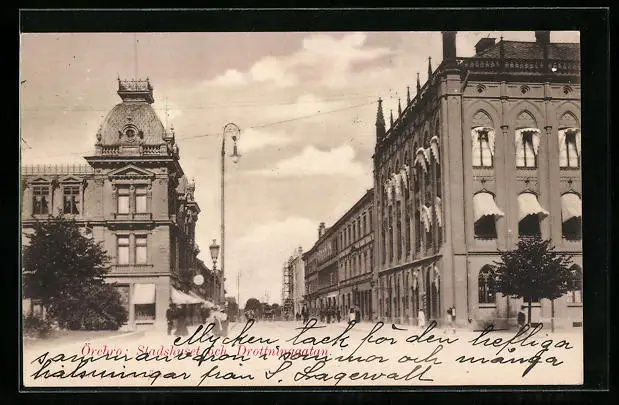 Örebro: Stadshuset och Drottninggatan.
Mycken tack för den hefliga
samman och många
hälsningar från S. Lagerwall